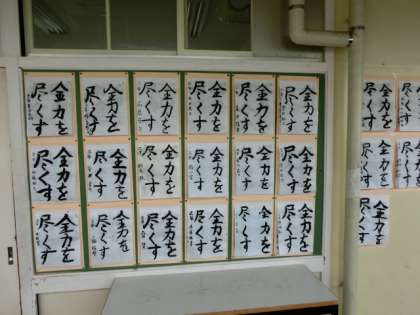 全力を
尽くす
全力を
尽くす
全力を
尽くす
全力を
尽くす
全力を
尽くす
全力を
尽くす
全力を
尽くす
全力を
尽くす
全力を
尽くす
全力を
尽くす
全力を
尽くす
全力を
尽くす
全力を
尽くす
全力を
尽くす
全力を
尽くす
全力を
尽くす
全力を
尽くす
全力を
尽くす
全力を
尽くす
全力を
尽くす
全力を
尽くす
全力を
尽くす
全力を
尽くす